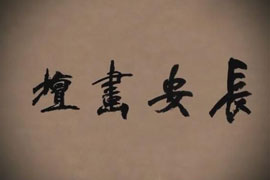 長安畫壇